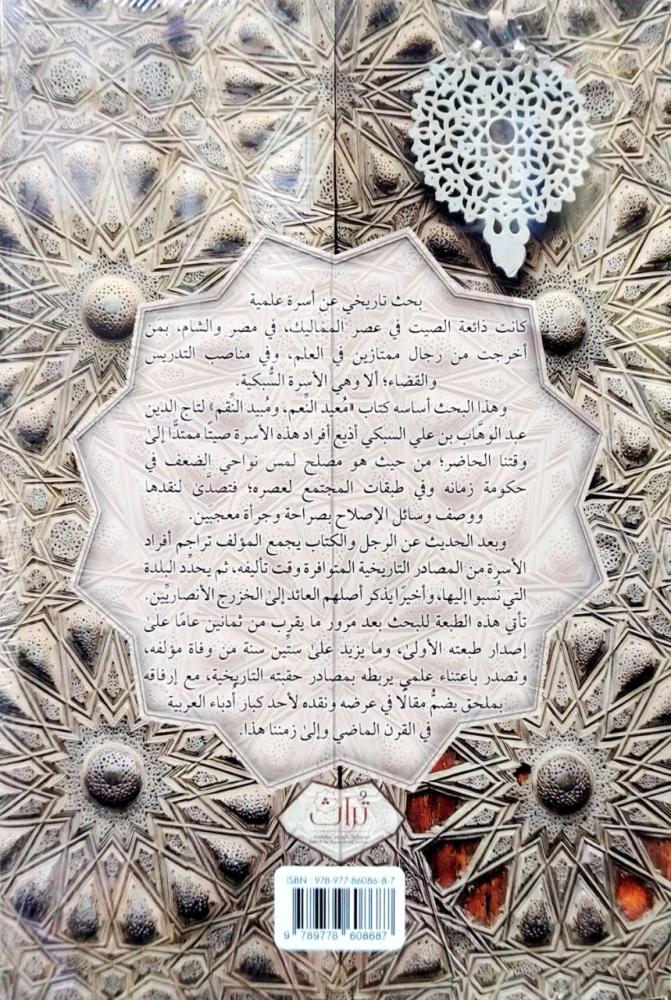 بحث تاريخي عن أسرة علمية
كانت ذائعة الصيت في عصر المماليك، في مصر والشام، بمَن
أخرجت من رجال ممتازين في العلم، وفي مناصب التدريس
والقضاء؛ ألا وهي الأسرة السُّبكية.
وهذا البحث أساسه كتاب «مُعيد النِّعم، ومُبيد النِّقم» لتاج الدين
عبد الوهَّاب بن علي السبكي أذيع أفراد هذه الأسرة صيتًا ممتدًّا إلى
وقتنا الحاضر؛ من حيث هو مصلح لمس نواحي الضعف في
حكومة زمانه وفي طبقات المجتمع لعصره؛ فتصدَّىٰ لنقدها
ووصف وسائل الإصلاح بصراحة وجرأة معجبين.
وبعد الحديث عن الرجل والكتاب يجمع المؤلف تراجم أفراد
الأسرة من المصادر التاريخية المتوافرة وقت تأليفه، ثم يحدِّد البلدة
التي نُسبوا إليها، وأخيرًا يذكر أصلهم العائد إلى الخزرج الأنصاريِّين.
تأتي هذه الطبعة للبحث بعد مرور ما يقرب من ثمانين عامًا علىٰ
إصدار طبعته الأولىٰ، وما يزيد علىٰ ستِّين سنة من وفاة مؤلفه،
وتصدر باعتناء علمي يربطه بمصادر حقبته التاريخية، مع إرفاقه
بملحق يضمُّ مقالًا في عرضه ونقده لأحد كبار أُدباء العربية
في القرن الماضي وإلىٰ زمننا هذا.
تُراث
ISBN : 978-977-86086-8-7
9 789778 608687